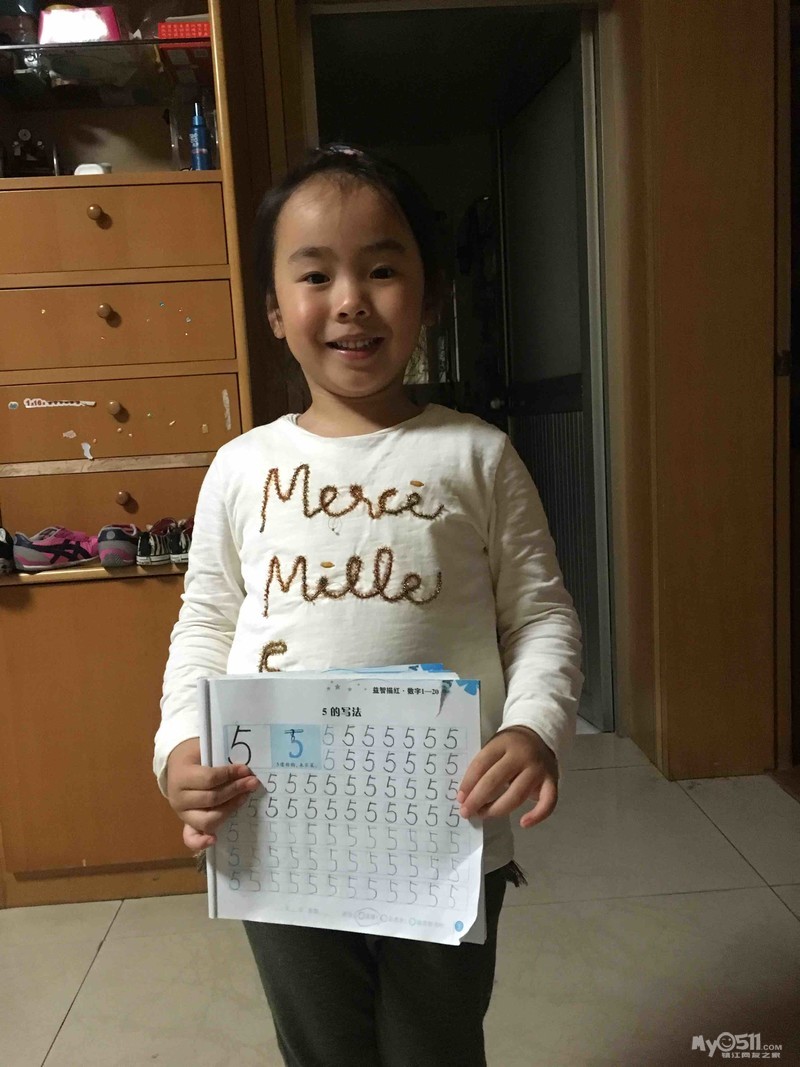 Merci
Mille
益智描红·数字1—20
5的写法
5 5 5 5 5 5 5 5 5
5 5 5 5 5 5
5 5 5 5 5 5 5 5 5
5 5 5 5 5 5 5 5 5 5
5 5 5 5 5 5 5 5 5 5
5 5 5 5 5 5 5 5 5 5
5 5 5 5 5 5 5 5 5 5
MyO511.COM
镇江网友之家